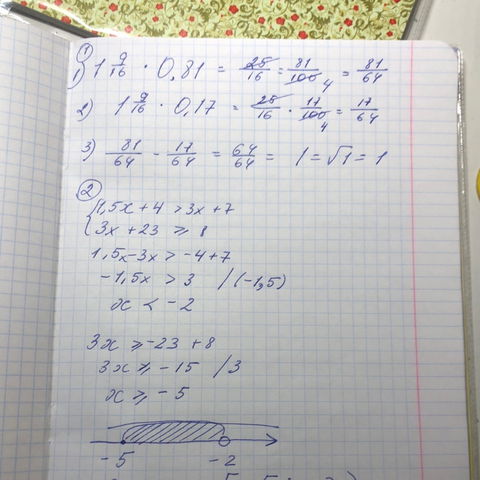 ①
1) 1 9/16 · 0,81 = 25/16 = 81/100 4 = 81/64
2) 1 9/16 · 0,17 = 25/16 · 17/100 4 = 17/64
3) 81/64 - 17/64 = 64/64 = 1 = √1 = 1
②
{1,5x + 4 > 3x + 7
{3x + 23 ≥ 8
1,5x - 3x > -4 + 7
-1,5x > 3 /(-1,5)
x < -2
3x ≥ -23 + 8
3x ≥ -15 /3
x ≥ -5
-5 -2